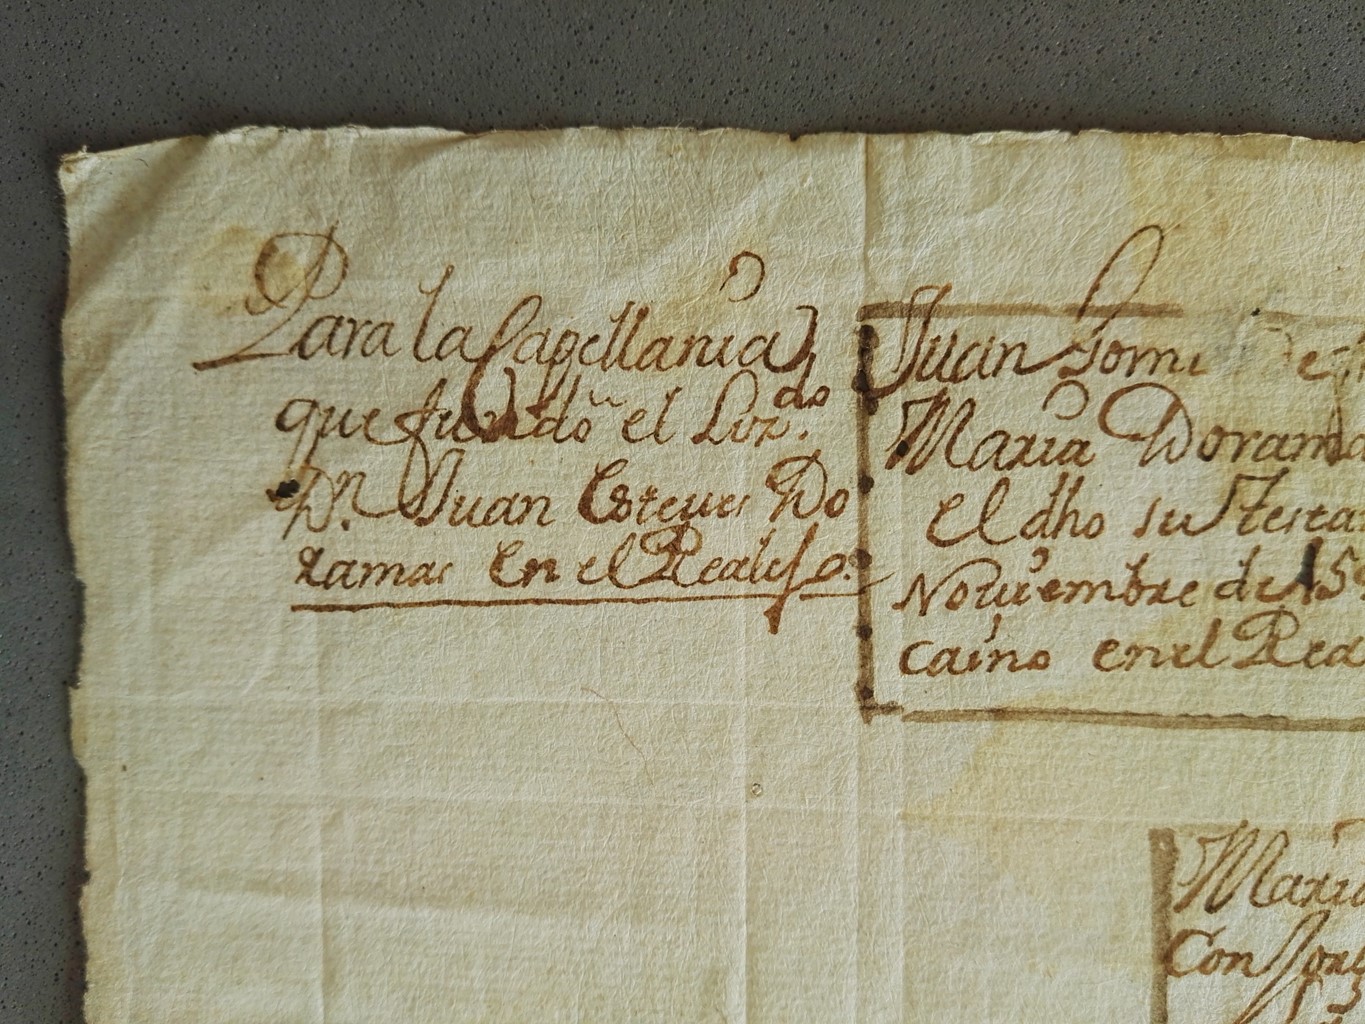 Para la Capellania
que fundo el Lizdo.
Dn. Juan Esteves Do
ramas en el Realejo.
Juan Gome
Maria Dorama
el dho su testa
Noviembre de 15
caino en el Rea
Maria
Con Jorg